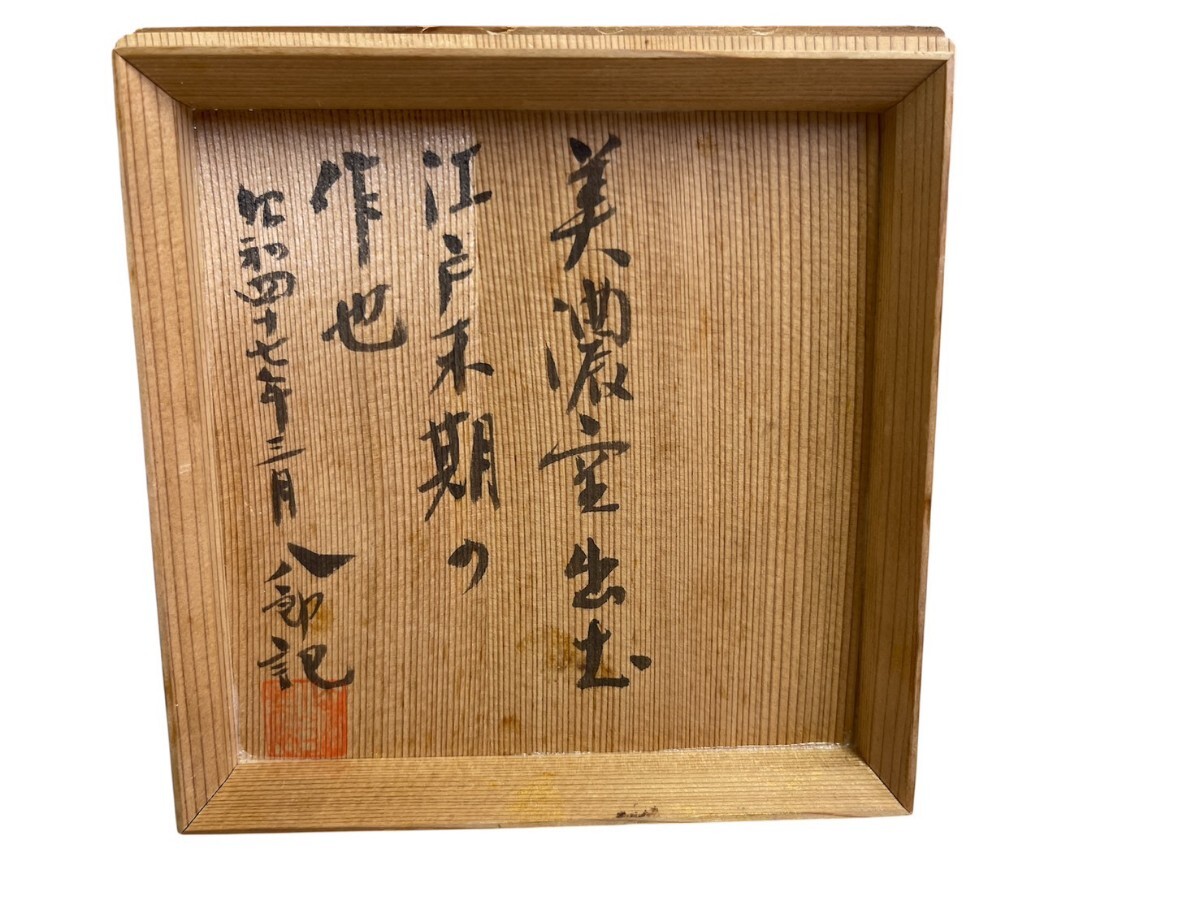 美濃窯出土
江戸末期の
作也
昭和四十七年三月
八郎記